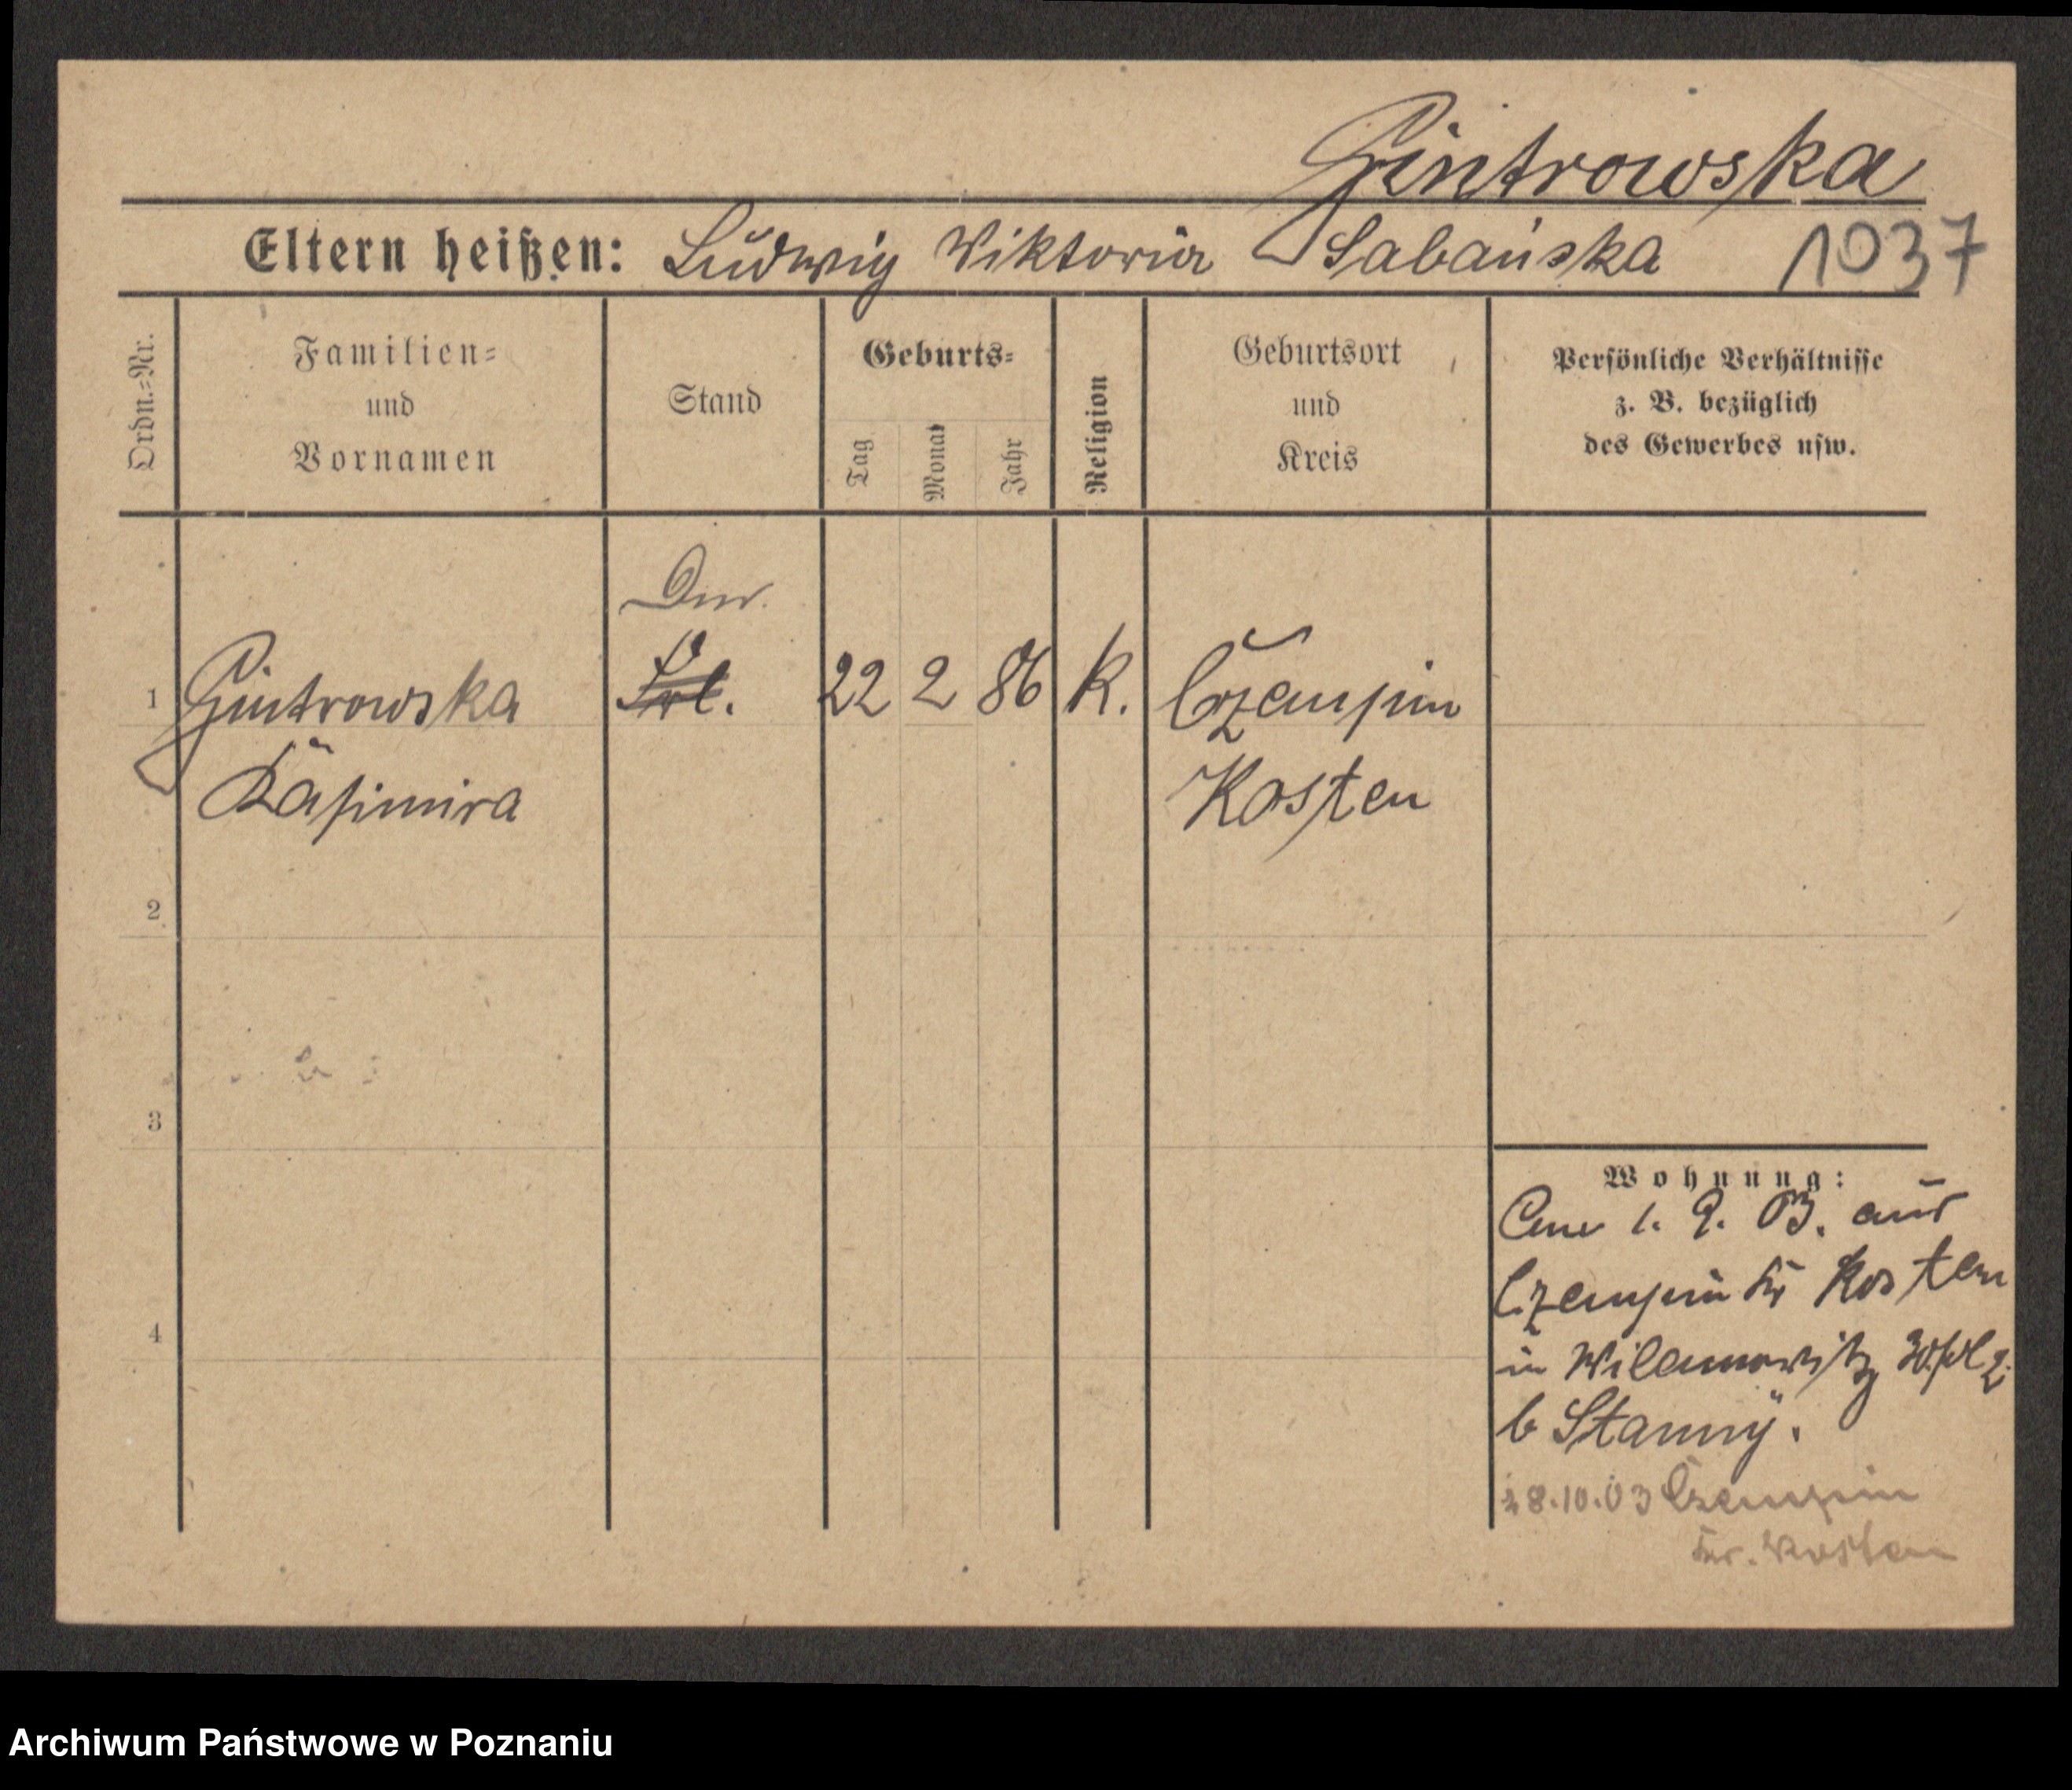 Gintrowska
Eltern heißen: Ludwig Viktoria Sabańska 1037
Ordn.=Nr.
Familien=
und
Vornamen
Stand
Geburts=
Tag
Monat
Jahr
Religion
Geburtsort
und
Kreis
Persönliche Verhältnisse
z. B. bezüglich
des Gewerbes usw.
1 Gintrowska Frl. 22 2 86 K. Czempin
Kasimira Kosten
2
3
4
Wohnung:
1. 9. 03. aus
Czempin Kr Kosten
in Wilamowitz
b Stanny.
8.10.03 Czempin
Kr. Kosten
Archiwum Państwowe w Poznaniu